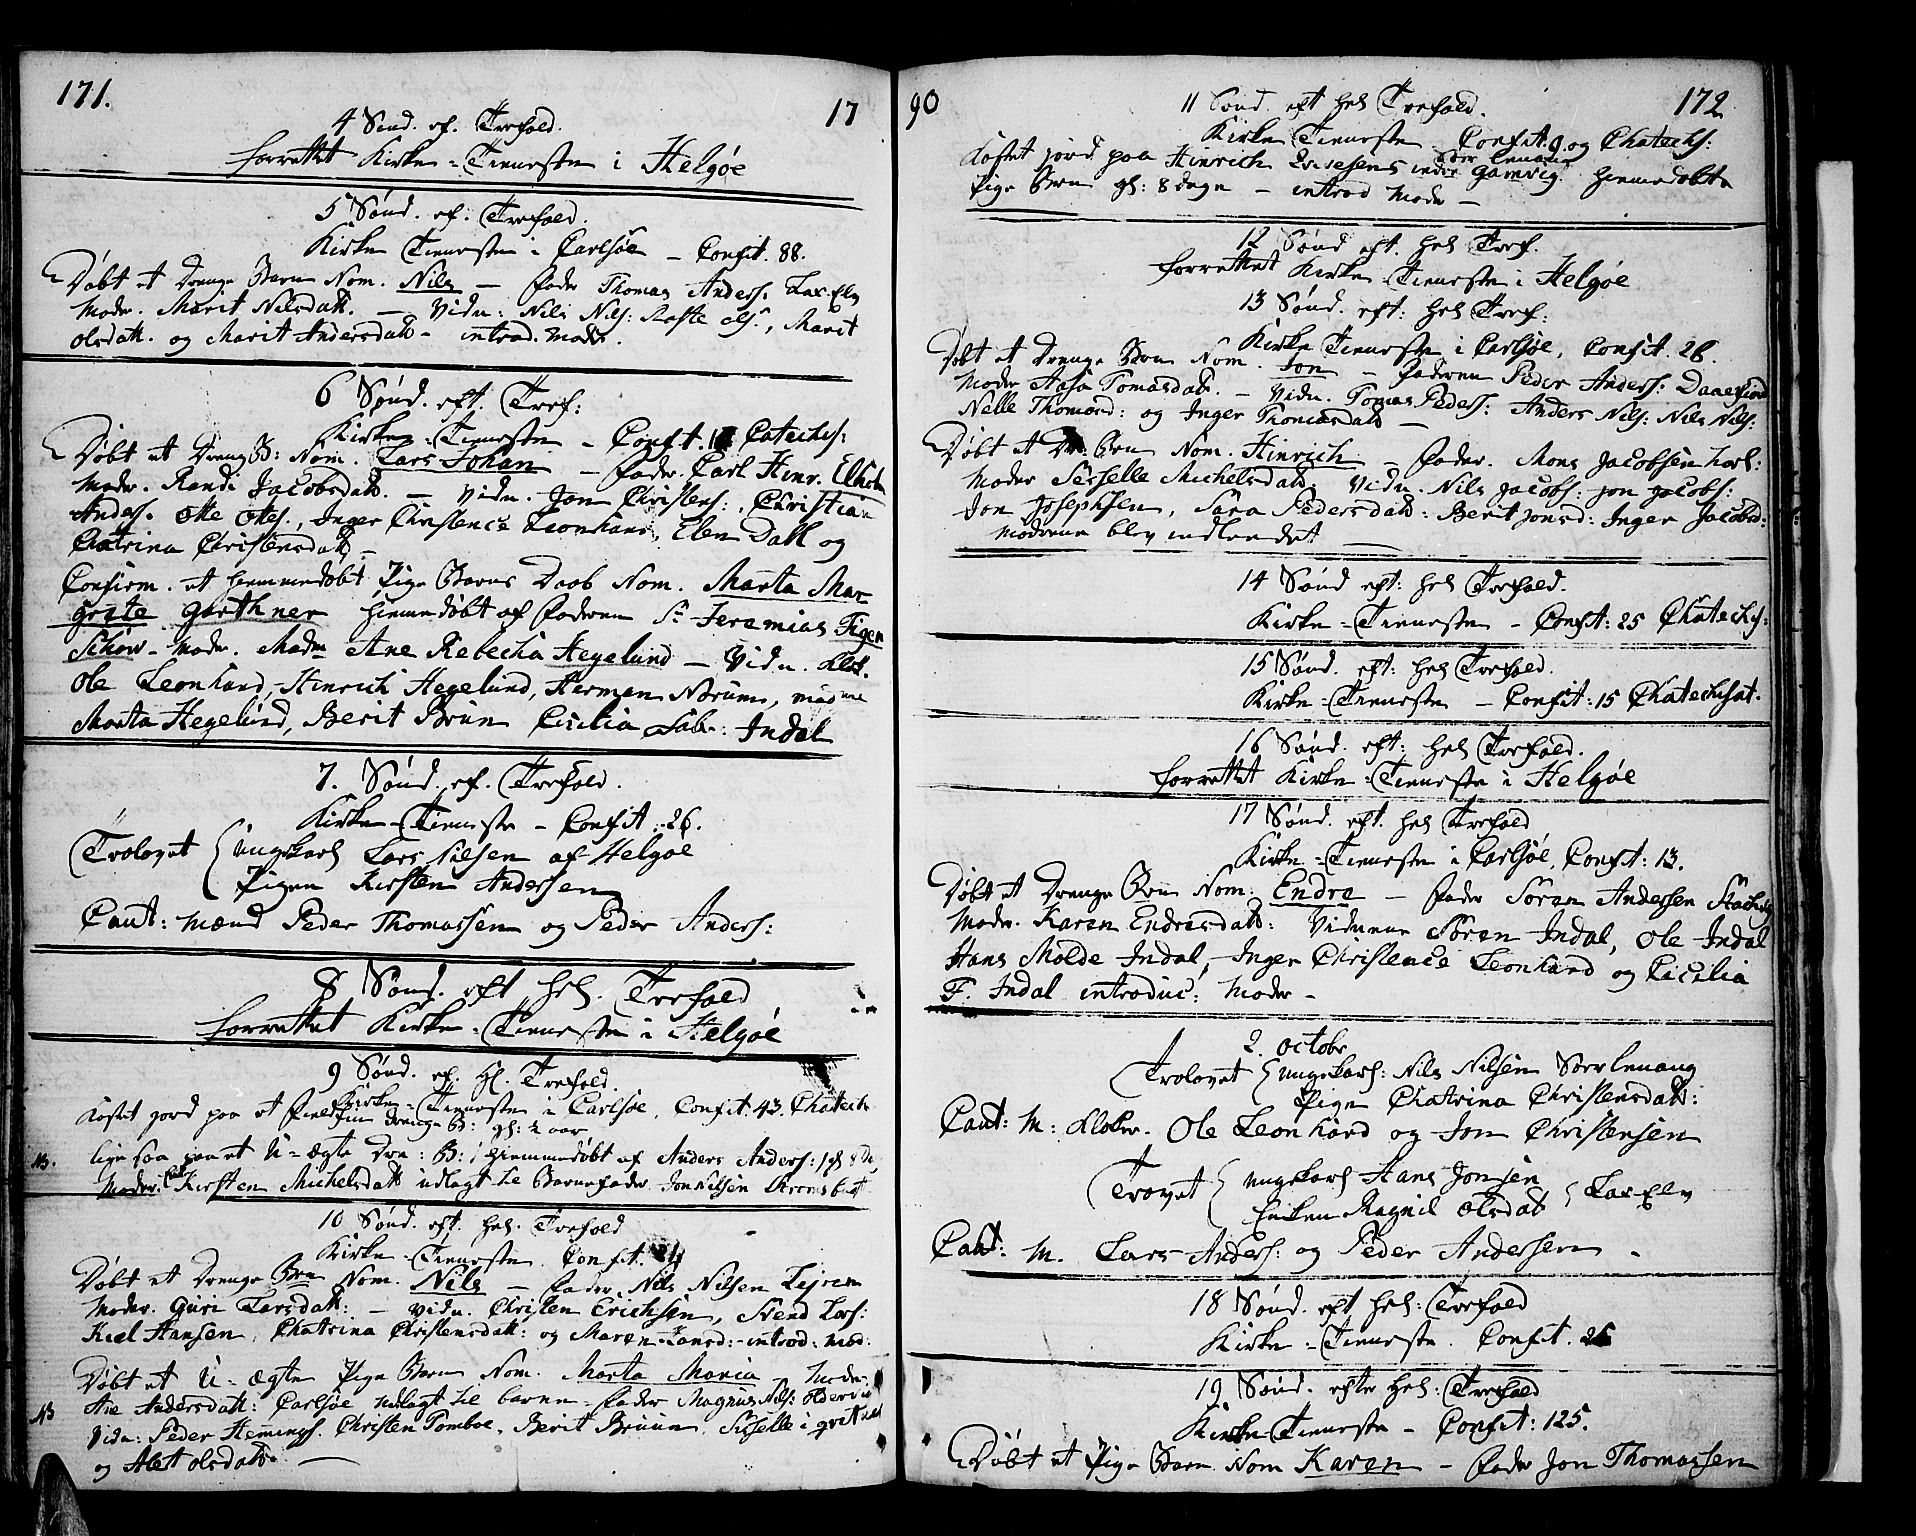 171.
17
4 Sønd. ef. Trefold.
forrettet Kirke-Tieneste i Helgøe
5 Sønd. ef. Trefold.
Kirke Tieneste i Carlsøe – Confit. 88.
Døbt et Drenge Barn Nom. Nils – Fader Thomas Anders: Lax-Elv
Moder. Marit Nilsdatt. – Vidn: Nils Nils: Ols:, Marit
olsdatt. og Marit Andersdatt – introd. Moder.
6 Sønd. eft. Tref:
Kirke-Tieneste – Confit. Catechs:
Døbt et Dreng B: Nom. Lars Johan – Fader. Carl Hinr.
Moder. Randi Jacobsdatt. – Vidn. Jon Christens:, Christian
Anders. Otte Ottes., Inger Christence Leonhard, Elen Datt og
Chatrina Christensdatt –
Confirm. et hiemmedøbt Pige Barns Daab Nom. Marta Mar
grete Garthner hiemmedøbt af Faderen Sr Jeremias Figen
Schow – Moder. Madm Ane Rebecha Hegelund – Vidn. Klok.
Ole Leonhard, Hinrich Hegelund, Herman Bruun, madme
Marta Hegelund, Berit Brun Cicilia Sab: Indal
7. Sønd. ef. Trefold.
Kirke-Tieneste – Confit: 26.
Trolovet { ungekarl Lars Nilsen af Helgøe
Pigen Kirsten Andersen
Caut: mænd Peder Thomassen og Peder Anders:
8 Sønd. eft hel. Trefold
forrettet Kirke-Tieneste i Helgøe
9 Sønd. ef. Hl. Trefold.
Kirke-Tieneste i Carlsøe, Confit: 43. Chatech
Kastet jord paa et Fieldfin Drenge B: gl: 2 aar
NB. lige saa paa et U-ægte Dre: B: / hiemmedøbt af Anders Anders: / gl 8 D
Moder. Kirsten Michelsdatt udlagt te Barnefader Jon Nilsen
10 Sønd. eft. hel. Trefold
Kirke-Tieneste. Confit. 24
Døbt et Drenge Brn Nom. Nils – Fader Nils Nilsen
Moder. Guri Larsdatt: – Vidn. Christen Erichsen, Svend Lars:
Kiel Hansen, Chatrina Christensdatt: og Maren Hansd: – introd: mod:
Døbt et U-ægte Pige Barn Nom. Marta Maria – Moder
NB Ane Andersdatt: Carlsøe udlagt te barne-fader Magnus Nils:
Vidn: Peder Hemings. Christen Tomboe, Berit Bruun, Sisselle i
og Alet olsdatt. –
90
172
11 Sønd. eft hel Trefold.
Kirke Tieneste – Confit. 9. og Chatechs:
Kastet jord paa Hinrich indre Gamvig hiemmedøbte
Pige Barn gl: 8 dage – introd Moder –
12 Sønd eft. hel Tref.
forrettet Kirke-Tieneste i Helgøe
13 Sønd. eft: hel Tref:
Kirke Tieneste i Carlsøe, Confit. 28.
Døbt et Drenge Brn Nom. Jon – Faderen Peder Anders: Daaefiord
Moder Aasa Tomasdatt. – Vidn. Tomas Peders: Anders Nils: Nils Nils:
Nelle Thomasd: og Inger Thomasdatt –
Døbt et Dr: Brn Nom. Hinrich – Fader. Mons Jacobsen
Moder Seselle Michelsdatt, Vidn. Nils Jacobs: Jon Jacobs:
Jon Josephsen, Sara Pedersdatt: Berit Jonsd: Inger Jacobsd:
Moderen blev indleedet –
14 Sønd eft: hel Trefold.
Kirke-Tieneste – Confit: 25 Chatechs:
15 Sønd. eft: hel Trefold.
Kirke-Tieneste – Confit: 15 Chatechsat.
16 Sønd. eft: hel Trefold.
forrettet Kirke-Tieneste i Helgøe
17 Sønd. eft. hel Trefold
Kirke-Tieneste i Carlsøe, Confit: 13.
Døbt et Drenge Brn Nom: Endre – Fader Sören Andersen
Moder. Karen Endresdatt: Vidnene Sören Indal, Ole Indal
Hans Molde Indal, Inger Christence Leonhard og Cicilia
F. Indal introduc: Moder –
2. octobr
Trolovet { ungekarl: Nils Nilsen Sørlenang
Pigen Chatrina Christensdatt:
Caut: M: Klokr. Ole Leonhard og Jon Christensen
Trovet { ungekarl Hans Jonsen
Enken Ragnil Olsdatt } Lax-Elv
Caut: M. Lars Anders: og Peder Andersen –
18 Sønd. eft hel: Trefold
Kirke-Tieneste. Confit. 26
19 Sønd. efter hel: Trefold
Kirke-Tieneste – Confit: 125.
Døbt et Pige Barn Nom Karen – Fader Jon Thomassen